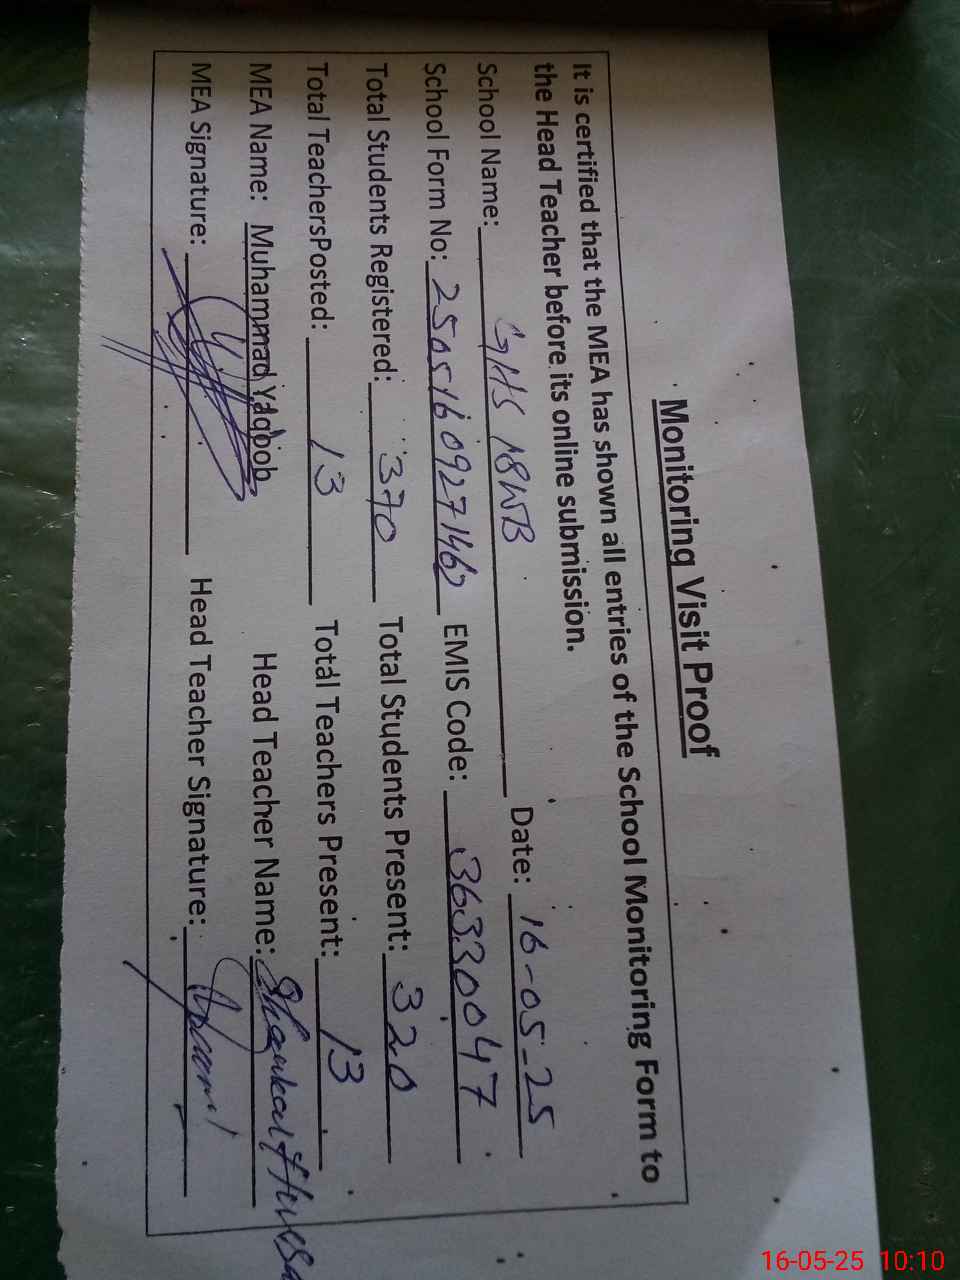 Monitoring Visit Proof
It is certified that the MEA has shown all entries of the School Monitoring Form to
the Head Teacher before its online submission.
School Name: GHS 18WB Date: 16-05-25
School Form No: 25051609271462 EMIS Code: 36330047
Total Students Registered: 370 Total Students Present: 320
Total TeachersPosted: 13 Total Teachers Present: 13
MEA Name: Muhammad Yaqoob Head Teacher Name: Shaukat
MEA Signature: Head Teacher Signature:
16-05-25 10:10